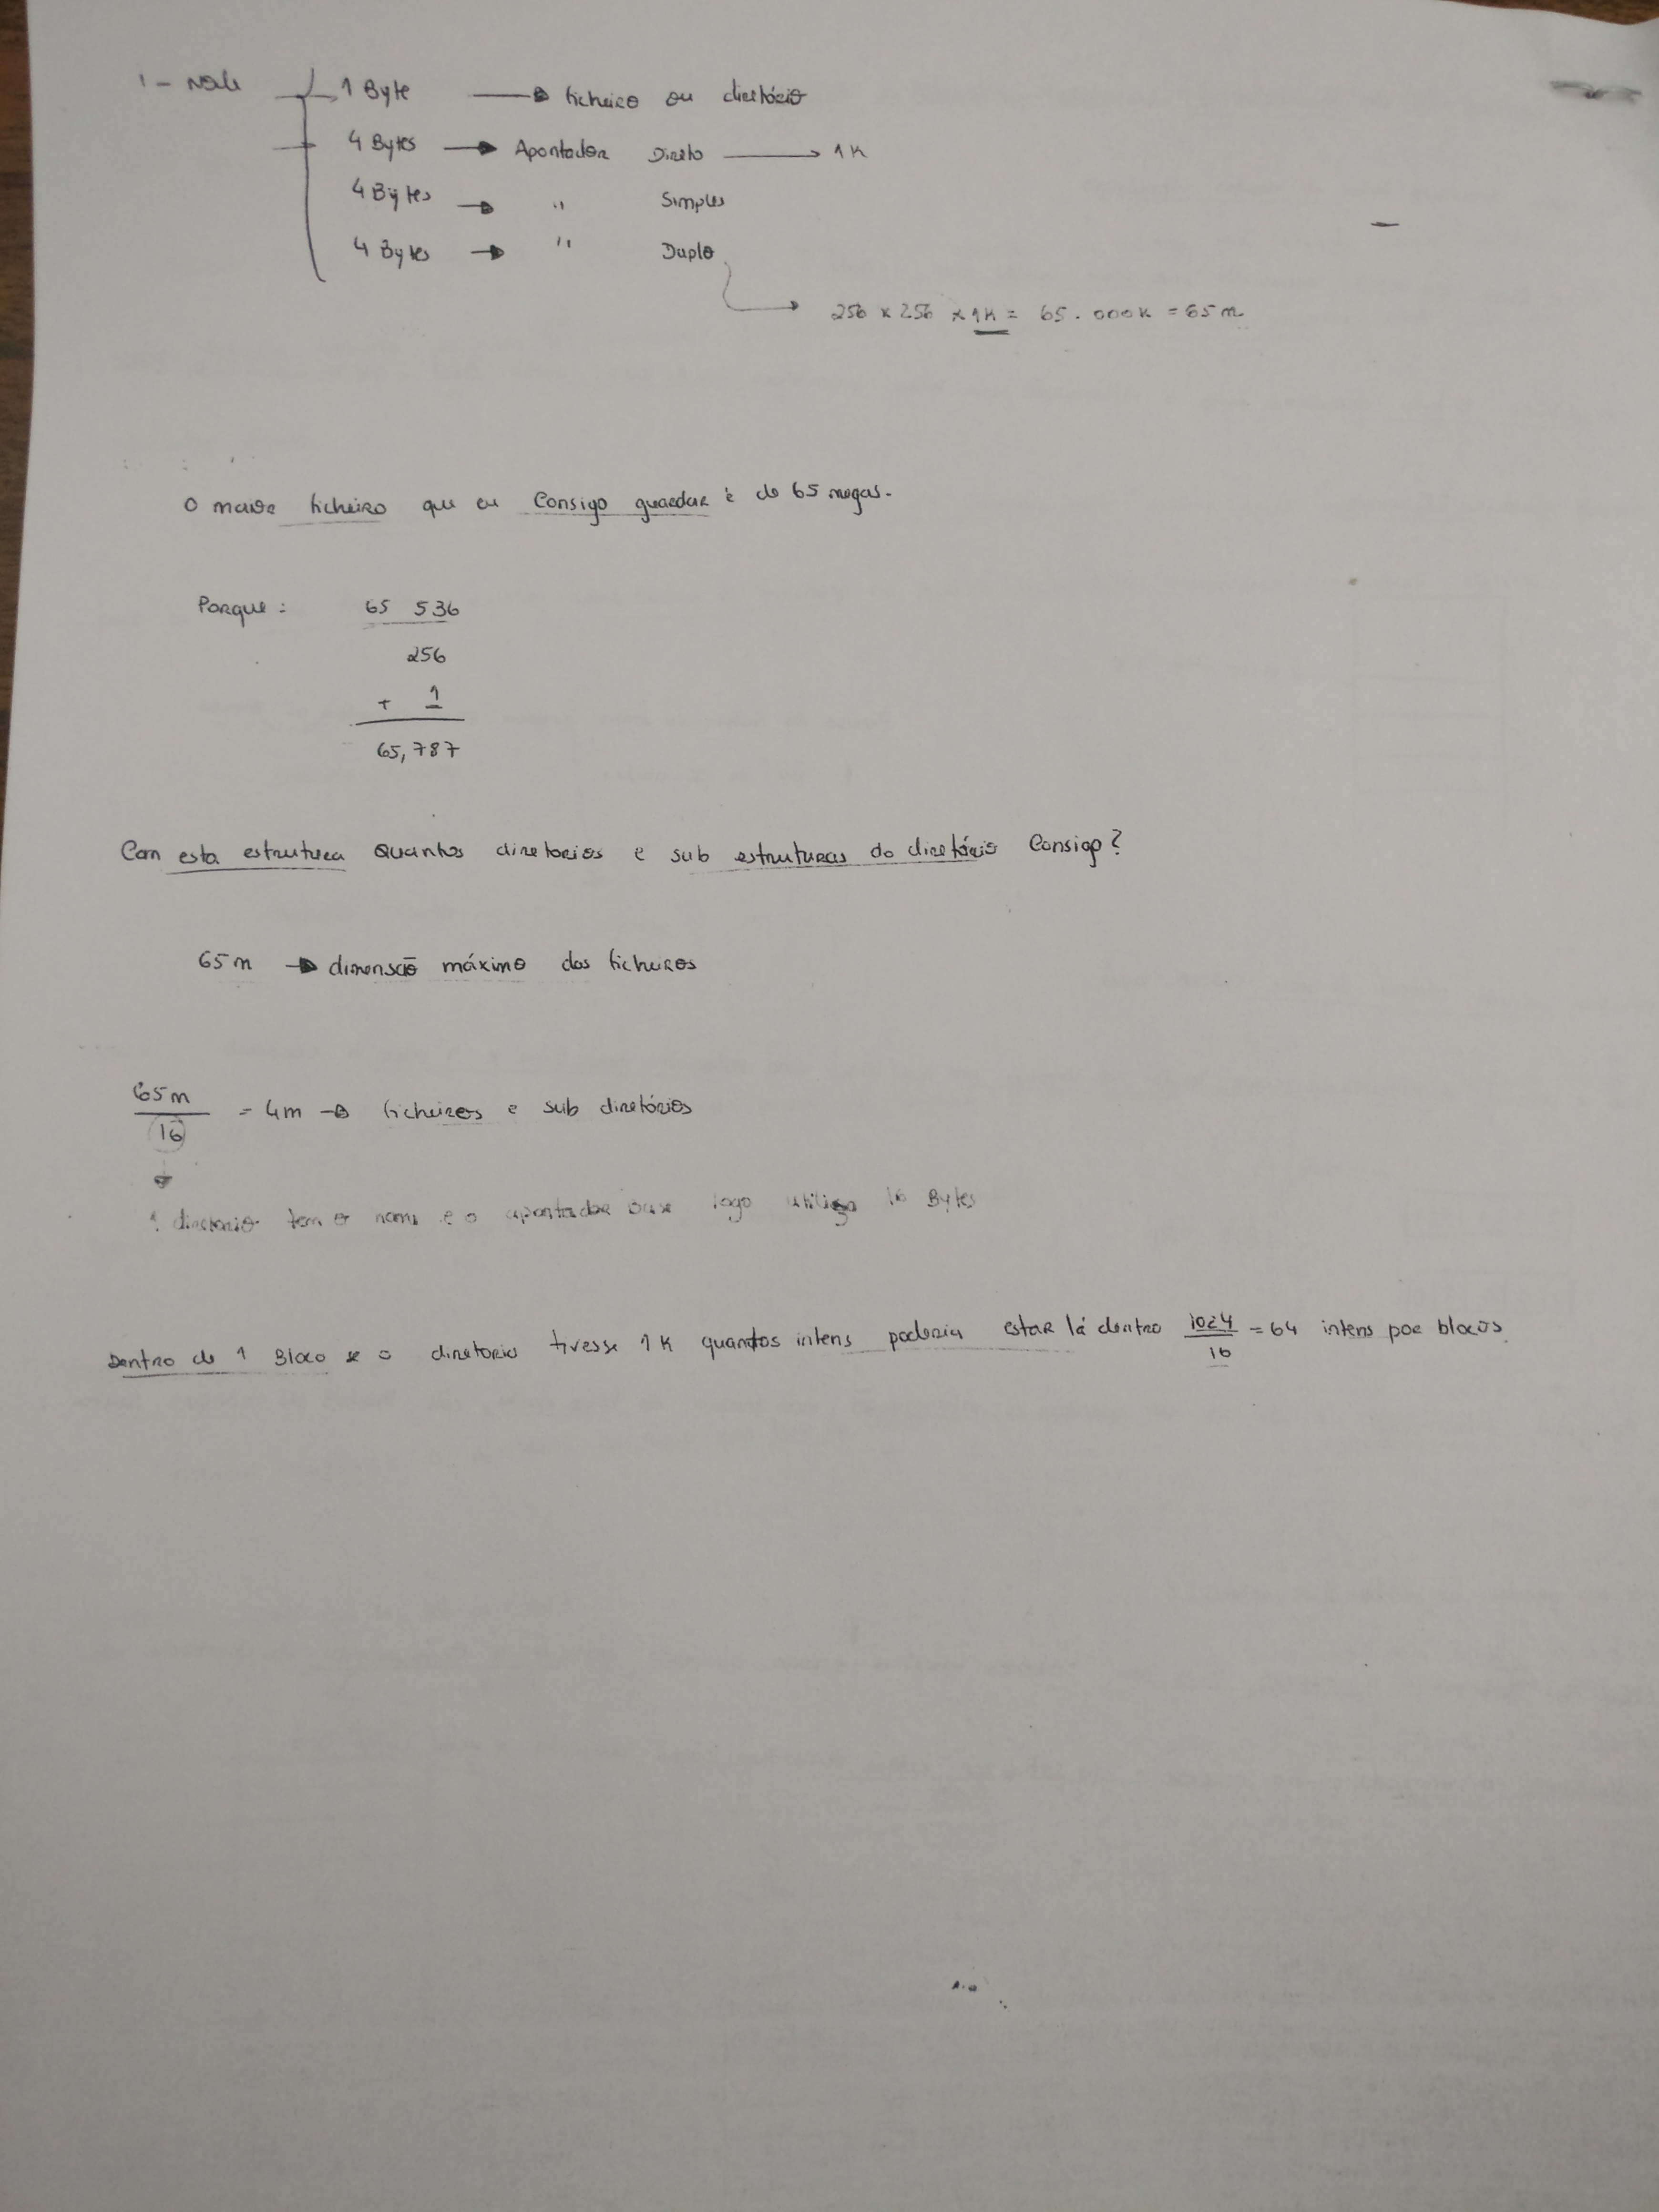 i - node 1 Byte → ficheiro ou diretório
4 Bytes → Apontador Direto → 1K
4 Bytes → " Simples
4 Bytes → " Duplo
256 x 256 x 1K = 65.000K = 65m
O maior ficheiro que eu Consigo guardar é de 65 megas.
Porque: 65 536
256
+ 1
65,787
Com esta estrutura Quantos diretorios e sub estruturas do diretório Consigo?
65m → dimensão máximo dos ficheiros
65m / 16 = 4m → ficheiros e sub diretórios
1 diretorio tem o nome e o apontador logo utiliza 16 Bytes
Dentro de 1 Bloco se o diretorio tivesse 1K quantos intens poderia estar lá dentro 1024 / 16 = 64 intens por blocos.